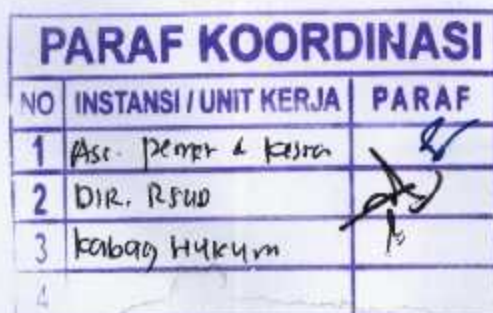 PARAF KOORDINASI
NO INSTANSI / UNIT KERJA PARAF
1 Ass. pemer & kesra
2 DIR. RSUD
3 kabag Hukum
4